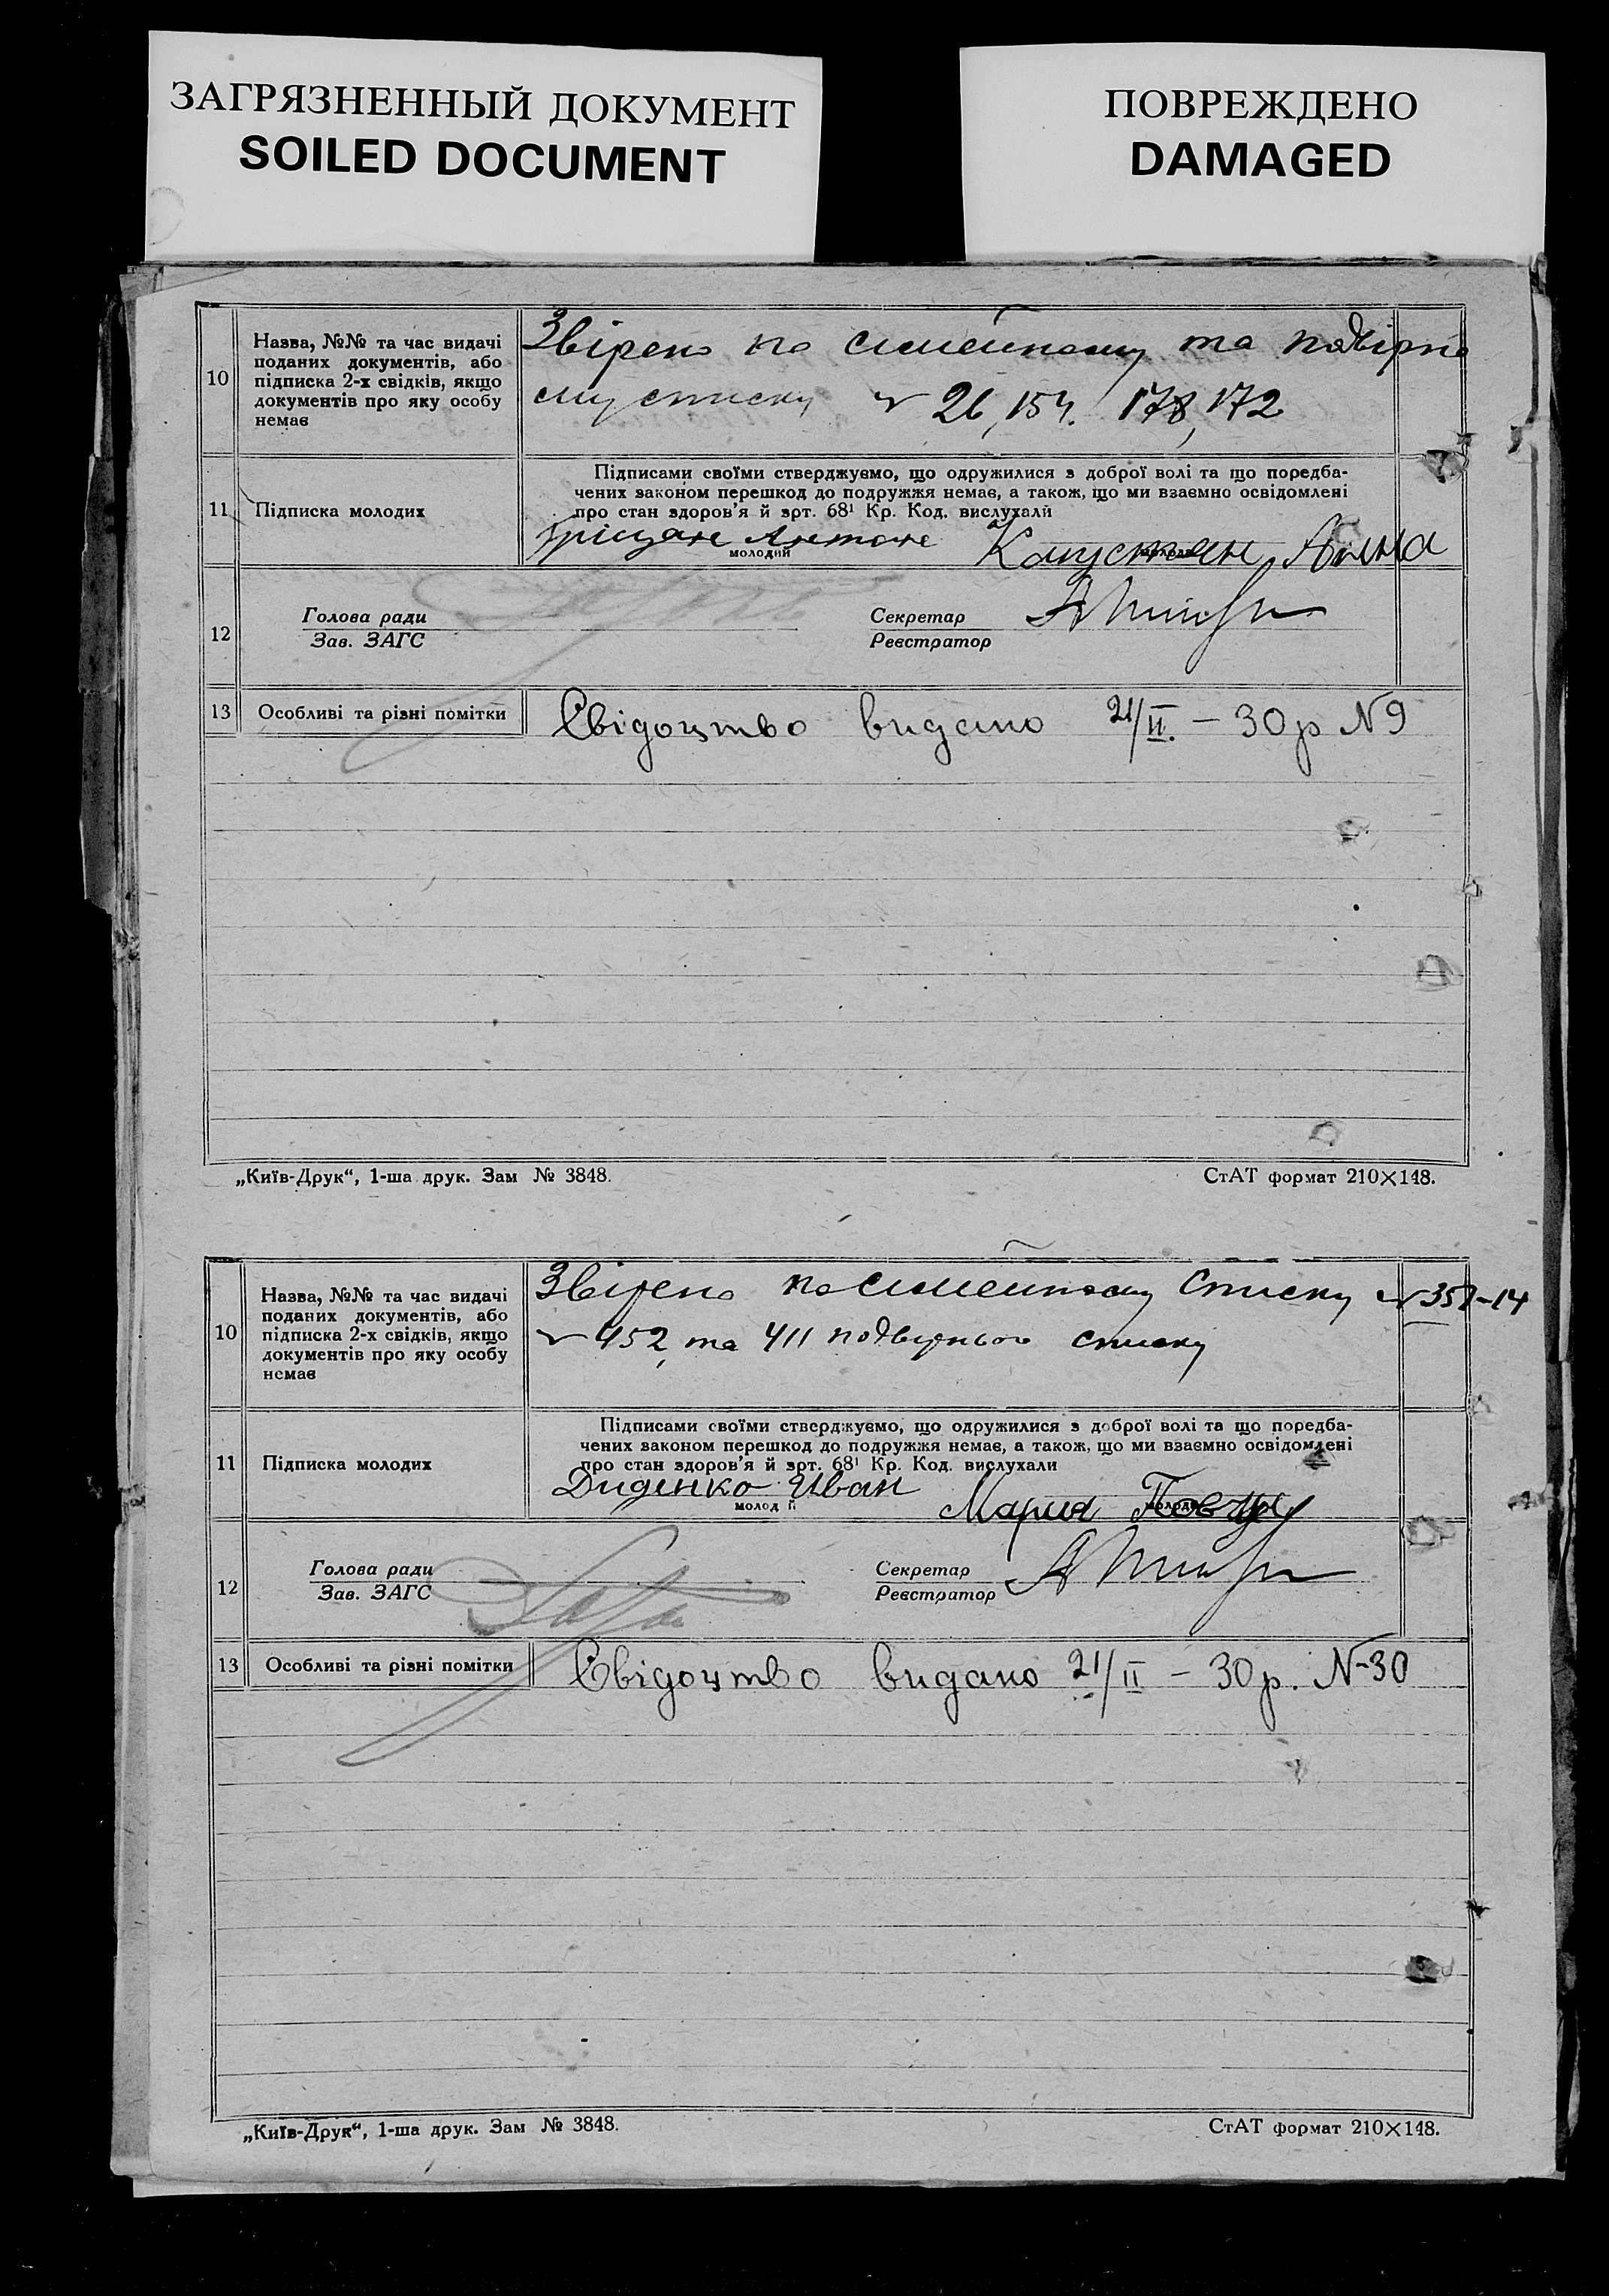 ЗАГРЯЗНЕННЫЙ ДОКУМЕНТ
SOILED DOCUMENT
ПОВРЕЖДЕНО
DAMAGED
10
Назва, №№ та час видачі
поданих документів, або
підписка 2-х свідків, якщо
документів про яку особу
немає
Звірено по сімейному та подвірно
му списку № 26, 154. 178, 172
11
Підписка молодих
Підписами своїми стверджуємо, що одружилися з доброї волі та що поредба-
чених законом перешкод до подружжя немає, а також, що ми взаємно освідомлені
про стан здоров'я й арт. 68¹ Кр. Код. вислухали
Антон Капустян Анна
молодий молода
12
Голова ради
Зав. ЗАГС
Секретар
Реєстратор
13
Особливі та різні помітки
Свідоцтво видано 21/II. – 30 р N 9
„Київ-Друк“, 1-ша друк. Зам № 3848.
СтАТ формат 210×148.
10
Назва, №№ та час видачі
поданих документів, або
підписка 2-х свідків, якщо
документів про яку особу
немає
Звірено по сімейному списку № 351-14
№ 452, та 411 подвірного списку
11
Підписка молодих
Підписами своїми стверджуємо, що одружилися з доброї волі та що поредба-
чених законом перешкод до подружжя немає, а також, що ми взаємно освідомлені
про стан здоров'я й арт. 68¹ Кр. Код. вислухали
Диденко Иван Мария
молод й молода
12
Голова ради
Зав. ЗАГС
Секретар
Реєстратор
13
Особливі та різні помітки
Свідоцтво видано 21/II – 30 р. N-30
„Київ-Друк“, 1-ша друк. Зам № 3848.
СтАТ формат 210×148.